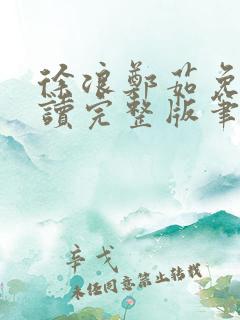 徐浪鄭茹免
讀完整版筆
辛戈
未经同意禁止转载